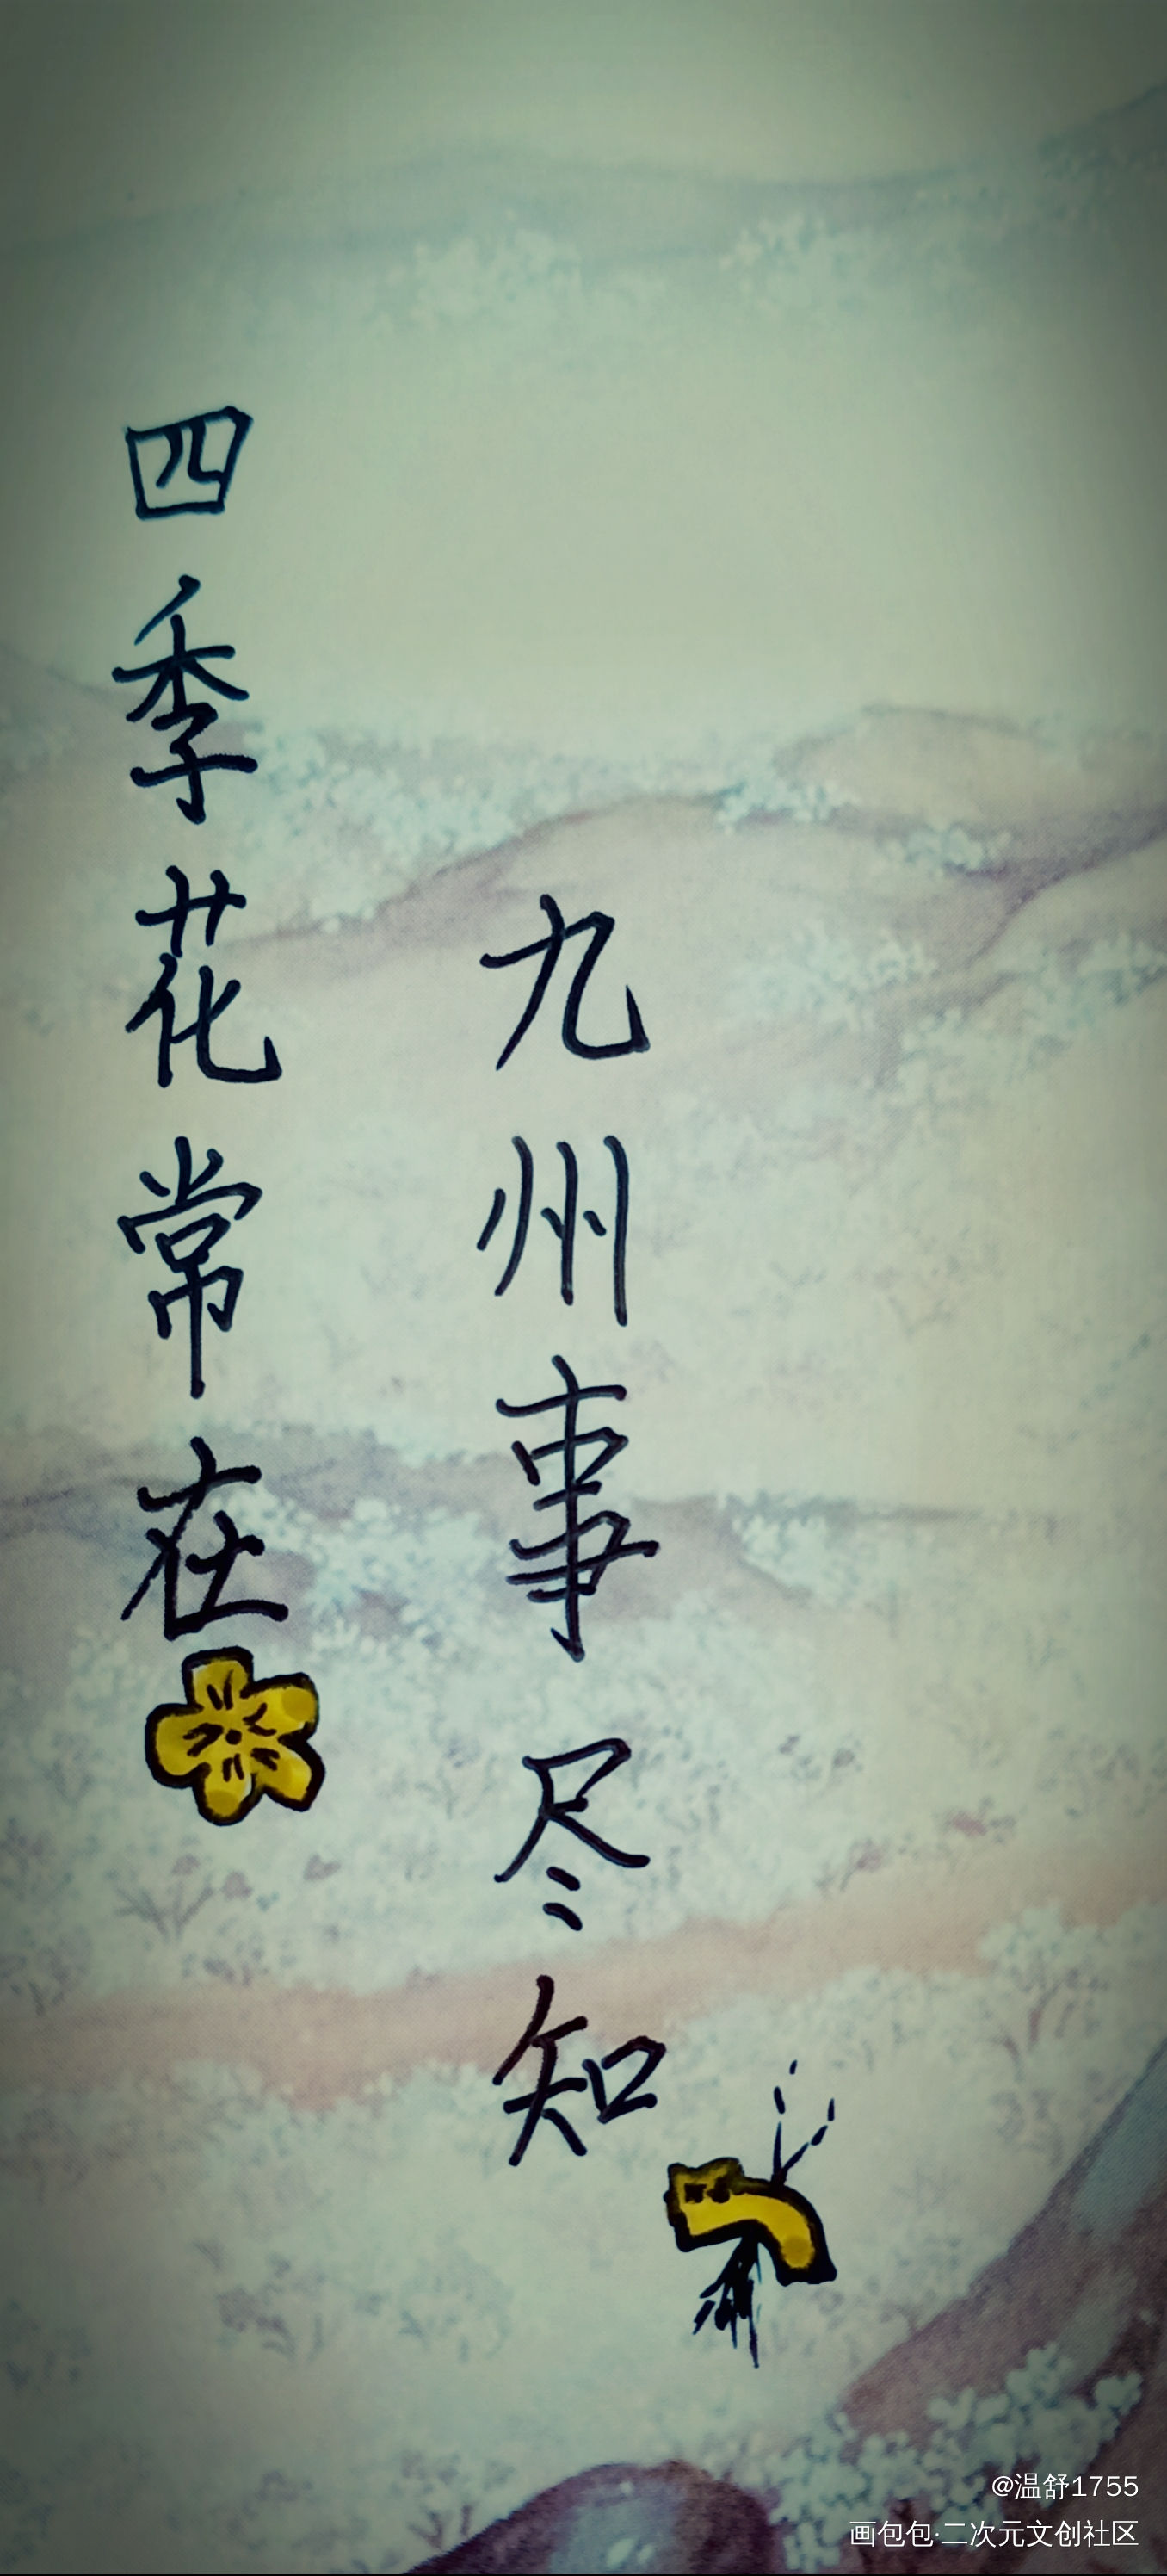 四季花常在
九州事尽知
@温舒1755
画包包·二次元文创社区